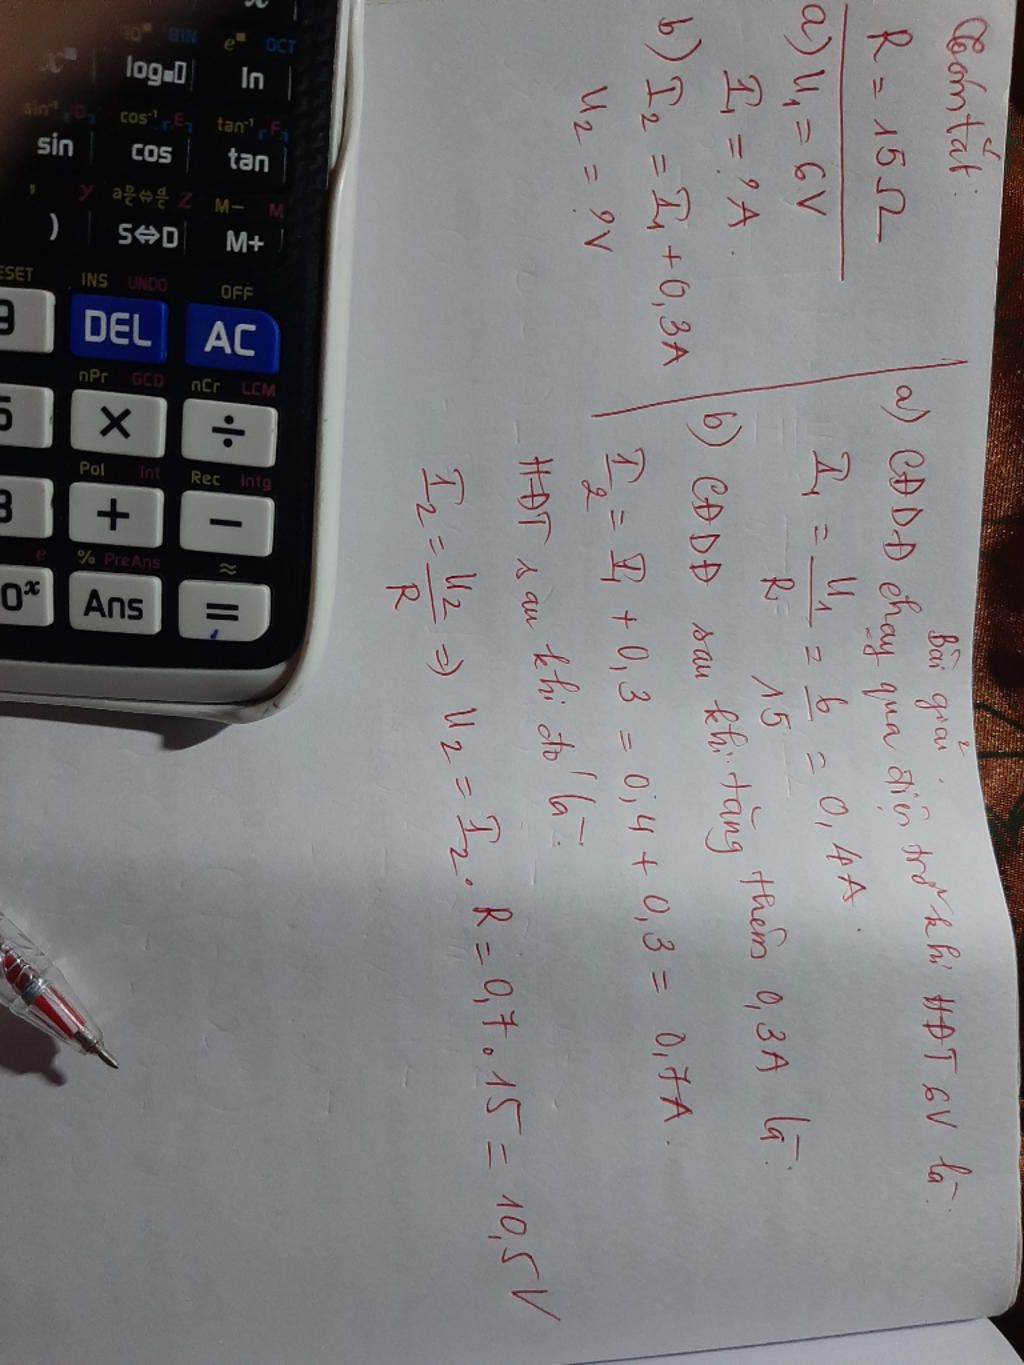 Tóm tắt:
R = 15Ω
a) U₁ = 6V
I₁ = ?A.
b) I₂ = I₁ + 0,3A
U₂ = ?V
Bài giải.
a) CĐDĐ chạy qua điện trở khi HĐT 6V là:
I₁ = U₁/R = 6/15 = 0,4A.
b) CĐDĐ sau khi tăng thêm 0,3A là:
I₂ = I₁ + 0,3 = 0,4 + 0,3 = 0,7A.
HĐT sau khi đó là:
I₂ = U₂/R => U₂ = I₂. R = 0,7.15 = 10,5V
10▪ BIN e▪ OCT
x▪ log▪▯ ln
sin⁻¹ D cos⁻¹ E tan⁻¹ F
sin cos tan
, y a b/c⇔d/c Z M− M
) S⇔D M+
RESET INS UNDO OFF
9 DEL AC
nPr GCD nCr LCM
× ÷
Pol Int Rec Intg
+ −
e % PreAns ≈
Ans =